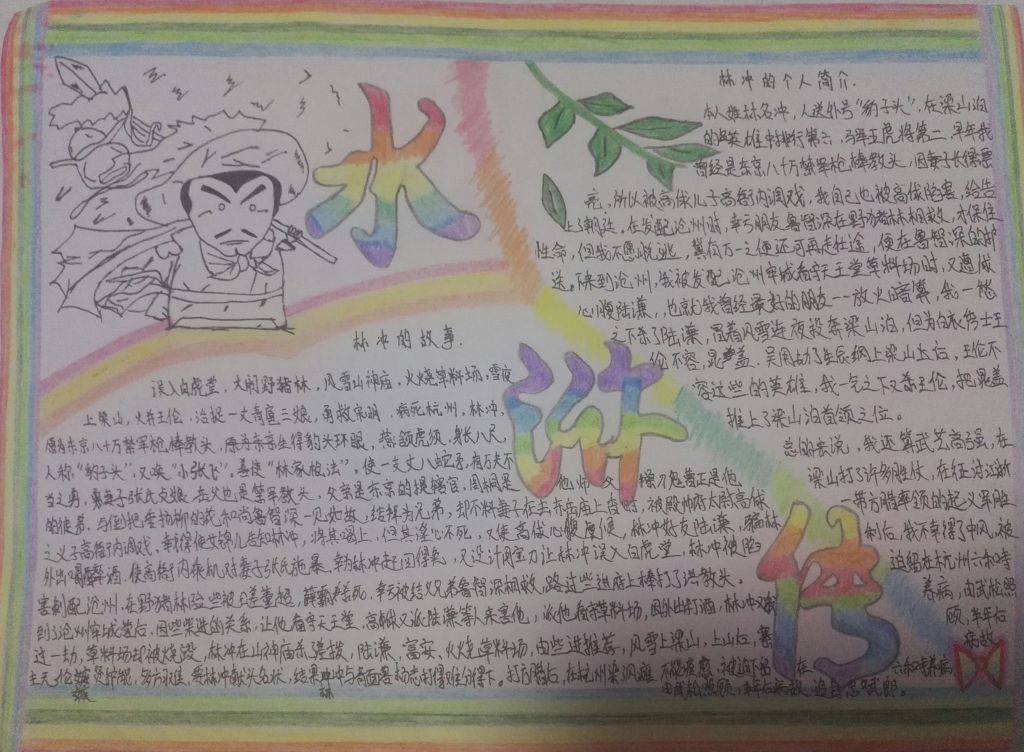 水
浒
传
林冲的个人简介.
本人姓林名冲，人送外号“豹子头”，在梁山泊
的英雄中排行第六，马军五虎将第二，早年我
曾经是东京八十万禁军枪棒教头，因妻子长得漂
亮，所以被高俅儿子高衙内调戏，我自己也被高俅陷害，给告
上朝廷。在发配沧州时，幸亏朋友鲁智深在野猪林相救，才保住
性命，但我不愿逃，万一之便还可再走仕途，便在鲁智深的护
送。来到沧州，我被发配沧州牢城看守天王堂草料场时，又遭俅
心腹陆谦，也就我曾经最好的朋友--放火暗算，我一怒
之下杀了陆谦，冒着风雪连夜投奔梁山泊，但为白衣秀士王
伦不容，晁盖、吴用劫了生辰纲上梁山后，王伦不
容这些的英雄，我一气之下又杀王伦，把晁盖
推上了梁山泊首领之位。
总的来说，我还算武艺高强，在
梁山打了许多胜仗，在征讨江浙
一带方腊率领的起义军胜
利后，我不幸得了中风，被
迫留在杭州六和寺
养病，由武松照
顾，半年后
病故
林冲的故事.
误入白虎堂，大闹野猪林，风雪山神庙，火烧草料场，雪夜
上梁山，火并王伦，活捉一丈青扈三娘，勇救宋明，病死杭州，林冲，
原为东京八十万禁军枪棒教头，原为东京生得豹头环眼，燕颔虎须，身长八尺，
人称“豹子头”，又唤“小张飞”，善使“林家枪法”，使一支丈八蛇矛，有万夫不
当之勇，妻子张氏贞娘，岳父也是禁军教头，父亲是东京的提辖官，周桐是他师父
的徒弟，与倒拔垂杨柳的花和尚鲁智深一见如故，结拜为兄弟，却不料妻子在去齐岳庙上香时，被殿帅府太尉高俅
之义子高衙内调戏，幸得使女锦儿告知林冲，将其喝上，但其淫心不死，又使高俅心腹虞侯，林冲好友陆谦，骗林
外出喝醉酒，使高衙内乘机对妻子张氏施暴，幸为林冲赶回得免，又设计用宝刀让林冲误入白虎堂，林冲被陷
害刺配沧州，在野猪林险些被董超，薛霸杀死，幸亏被结义兄弟鲁智深相救，路过柴进庄上棒打了洪教头。
到了沧州牢城营后，因些柴进的关系，让他看守天王堂，高俅又派陆谦等人来害他，派他看守草料场，因外出打酒，林冲又躲
这一劫，草料场却被烧毁，林冲在山神庙杀差拨，陆谦，富安，火烧草料场，由柴进推荐，风雪上梁山，上山后，寨
主王伦，多方刁难，要林冲献头名状，结果林冲与青面兽杨志打得难分难下。打方腊后，在杭州染风瘫，不能痊愈，被迫下留在六和寺养病，
由武松照顾，半年后病故，追封忠武郎。